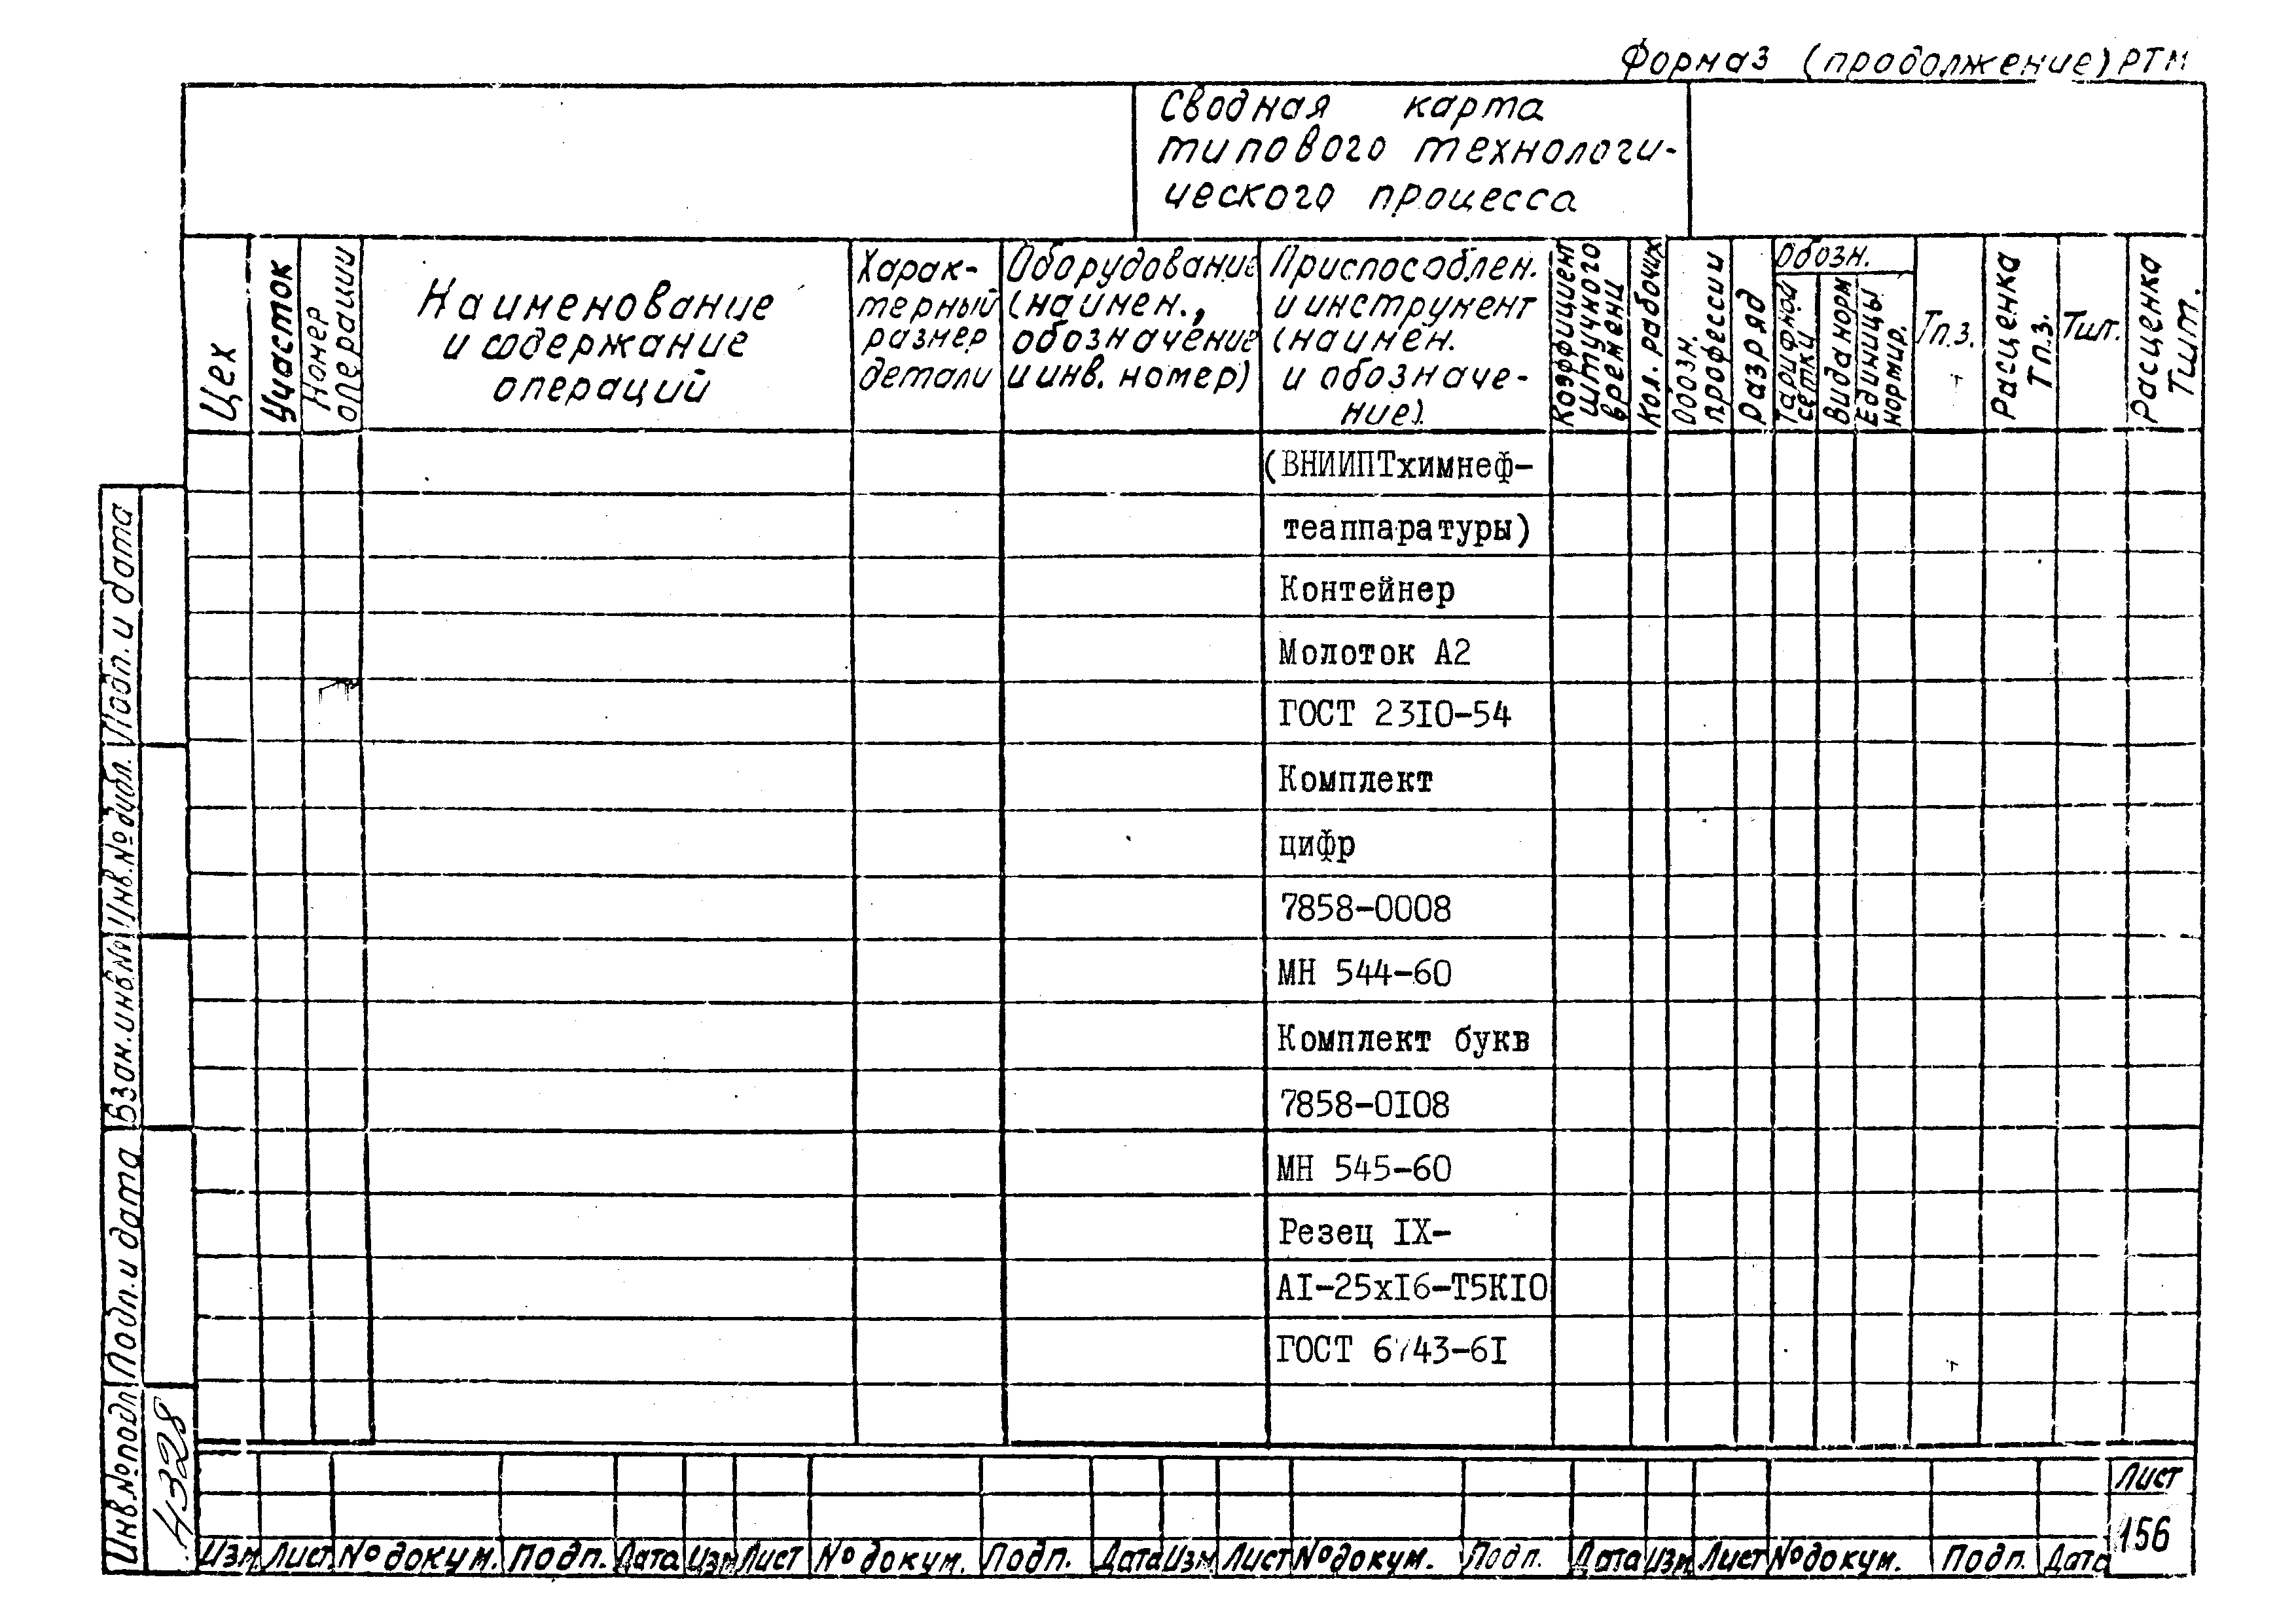 Форма3 (продолжение) РТМ
Сводная карта
типового технологи-
ческого процесса
Цех
Участок
Номер
операции
Наименование
и содержание
операций
Харак-
терный
размер
детали
Оборудование
(наимен.,
обозначение
и инв. номер)
Приспособлен.
и инструмент
(наимен.
и обозначе-
ние).
Коэффициент
штучного
времени
Кол. рабочих
Обозн.
профессии
Разряд
Обозн.
Тарифной
сетки
Вида норм
Единицы
нормир.
Тп.з.
Расценка
Тп.з.
Тшт.
Расценка
Тшт.
(ВНИИПТхимнеф-
теаппаратуры)
Контейнер
Молоток А2
ГОСТ 23I0-54
Комплект
цифр
7858-0008
МН 544-60
Комплект букв
7858-0I08
МН 545-60
Резец IX-
АI-25хI6-Т5КI0
ГОСТ 6743-6I
Подп. и дата
Инв.№дубл.
Взам.инв№
Подп. и дата
Инв.№подл
4328
Изм Лист №докум. Подп. Дата Изм Лист №докум. Подп. Дата Изм Лист №докум. Подп. Дата Изм Лист №докум. Подп. Дата
Лист
156